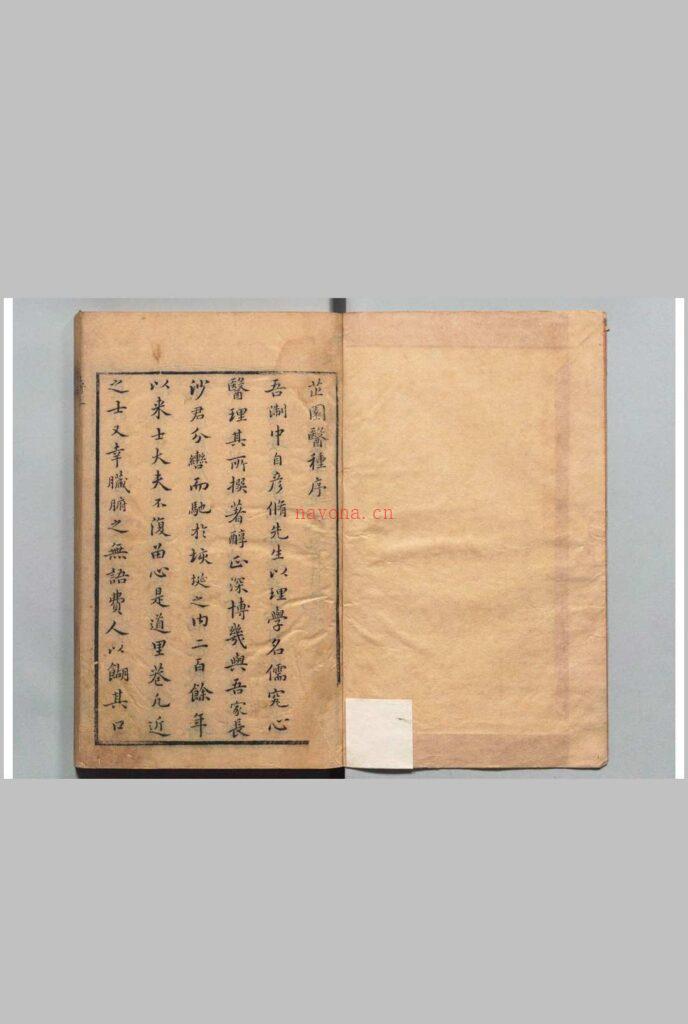 芷園醫種序
吾淛中自彦脩先生以理學名儒究心
醫理其所撰著醇正深博幾與吾家長
沙君分轡而馳於垓埏之内二百餘年
以来士大夫不復留心是道里巷凡近
之士又幸臟腑之無語費人以餬其口
nayona.cn